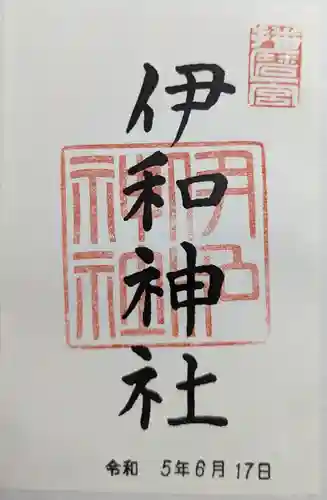 播磨宮
伊和神社
伊和
神社
令和 5年6月17日